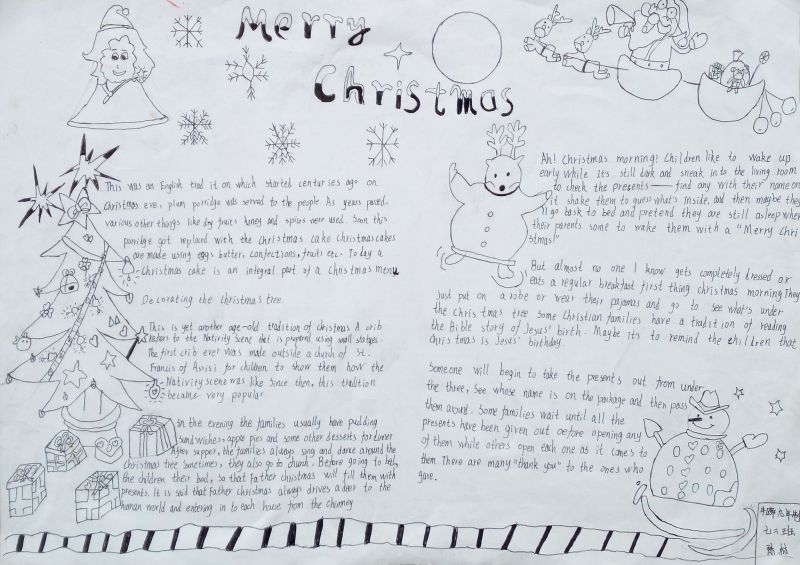 Merry
Christmas
This was an English trad it on which started centuries ago on
Christmas eve, plum porridge was served to the people As years paved,
various other things like dry fruits honey and spices were used. Soon this
porridge got replaced with the Christmas cake Christmascakes
are made using eggs butter, confections, fruits etc. Today a
Christmas cake is an integral part of a Christmas menu
Decorating the Christmas tree
This is yet another age-old tradition of christmas A crib
refers to the Nativity Scene that is prepared using small statues.
The first crib ever was made outside a church of St.
Francis of Assisi for children to show them how the
Nativity scene was like Since then, this tradition
became very popular
in the evening the families usually have pudding
sandwishes, apple pies and some other desserts for dinner
After supper, the families always sing and dance around the
Christmas tree Sometimes, they also go to church. Before going to bed,
the children their bad, so that Father christmas will fill them with
presents. It is said that Father Christmas always drives a deer to the
human world and entering in to each house from the chimney
Ah! Christmas morning! Children like to wake up
early while it's still dark and sneak in to the living room
to check the presents — find any with their name on
it shake them to guess what's inside, and then maybe they
'll go back to bed and pretend they are still asleep when
their parents some to wake them with a "Merry Chri
stmas!"
But almost no one I know gets completely dressed or
eats a regular breakfast first thing christmas morning They
just put on a robe or wear their pajamas and go to see what's under
the Christmas tree some Christian families have a tradition of reading
the Bible story of Jesus' birth. Maybe its to remind the children that
christmas is Jesus' birthday.
Someone will begin to take the presents out from under
the three, see whose name is on the package and then pass
them around. Some families wait until all the
presents have been given out before opening any
of them while others open each one as it comes to
them There are many "thank you" to the ones who
gave.
七六班